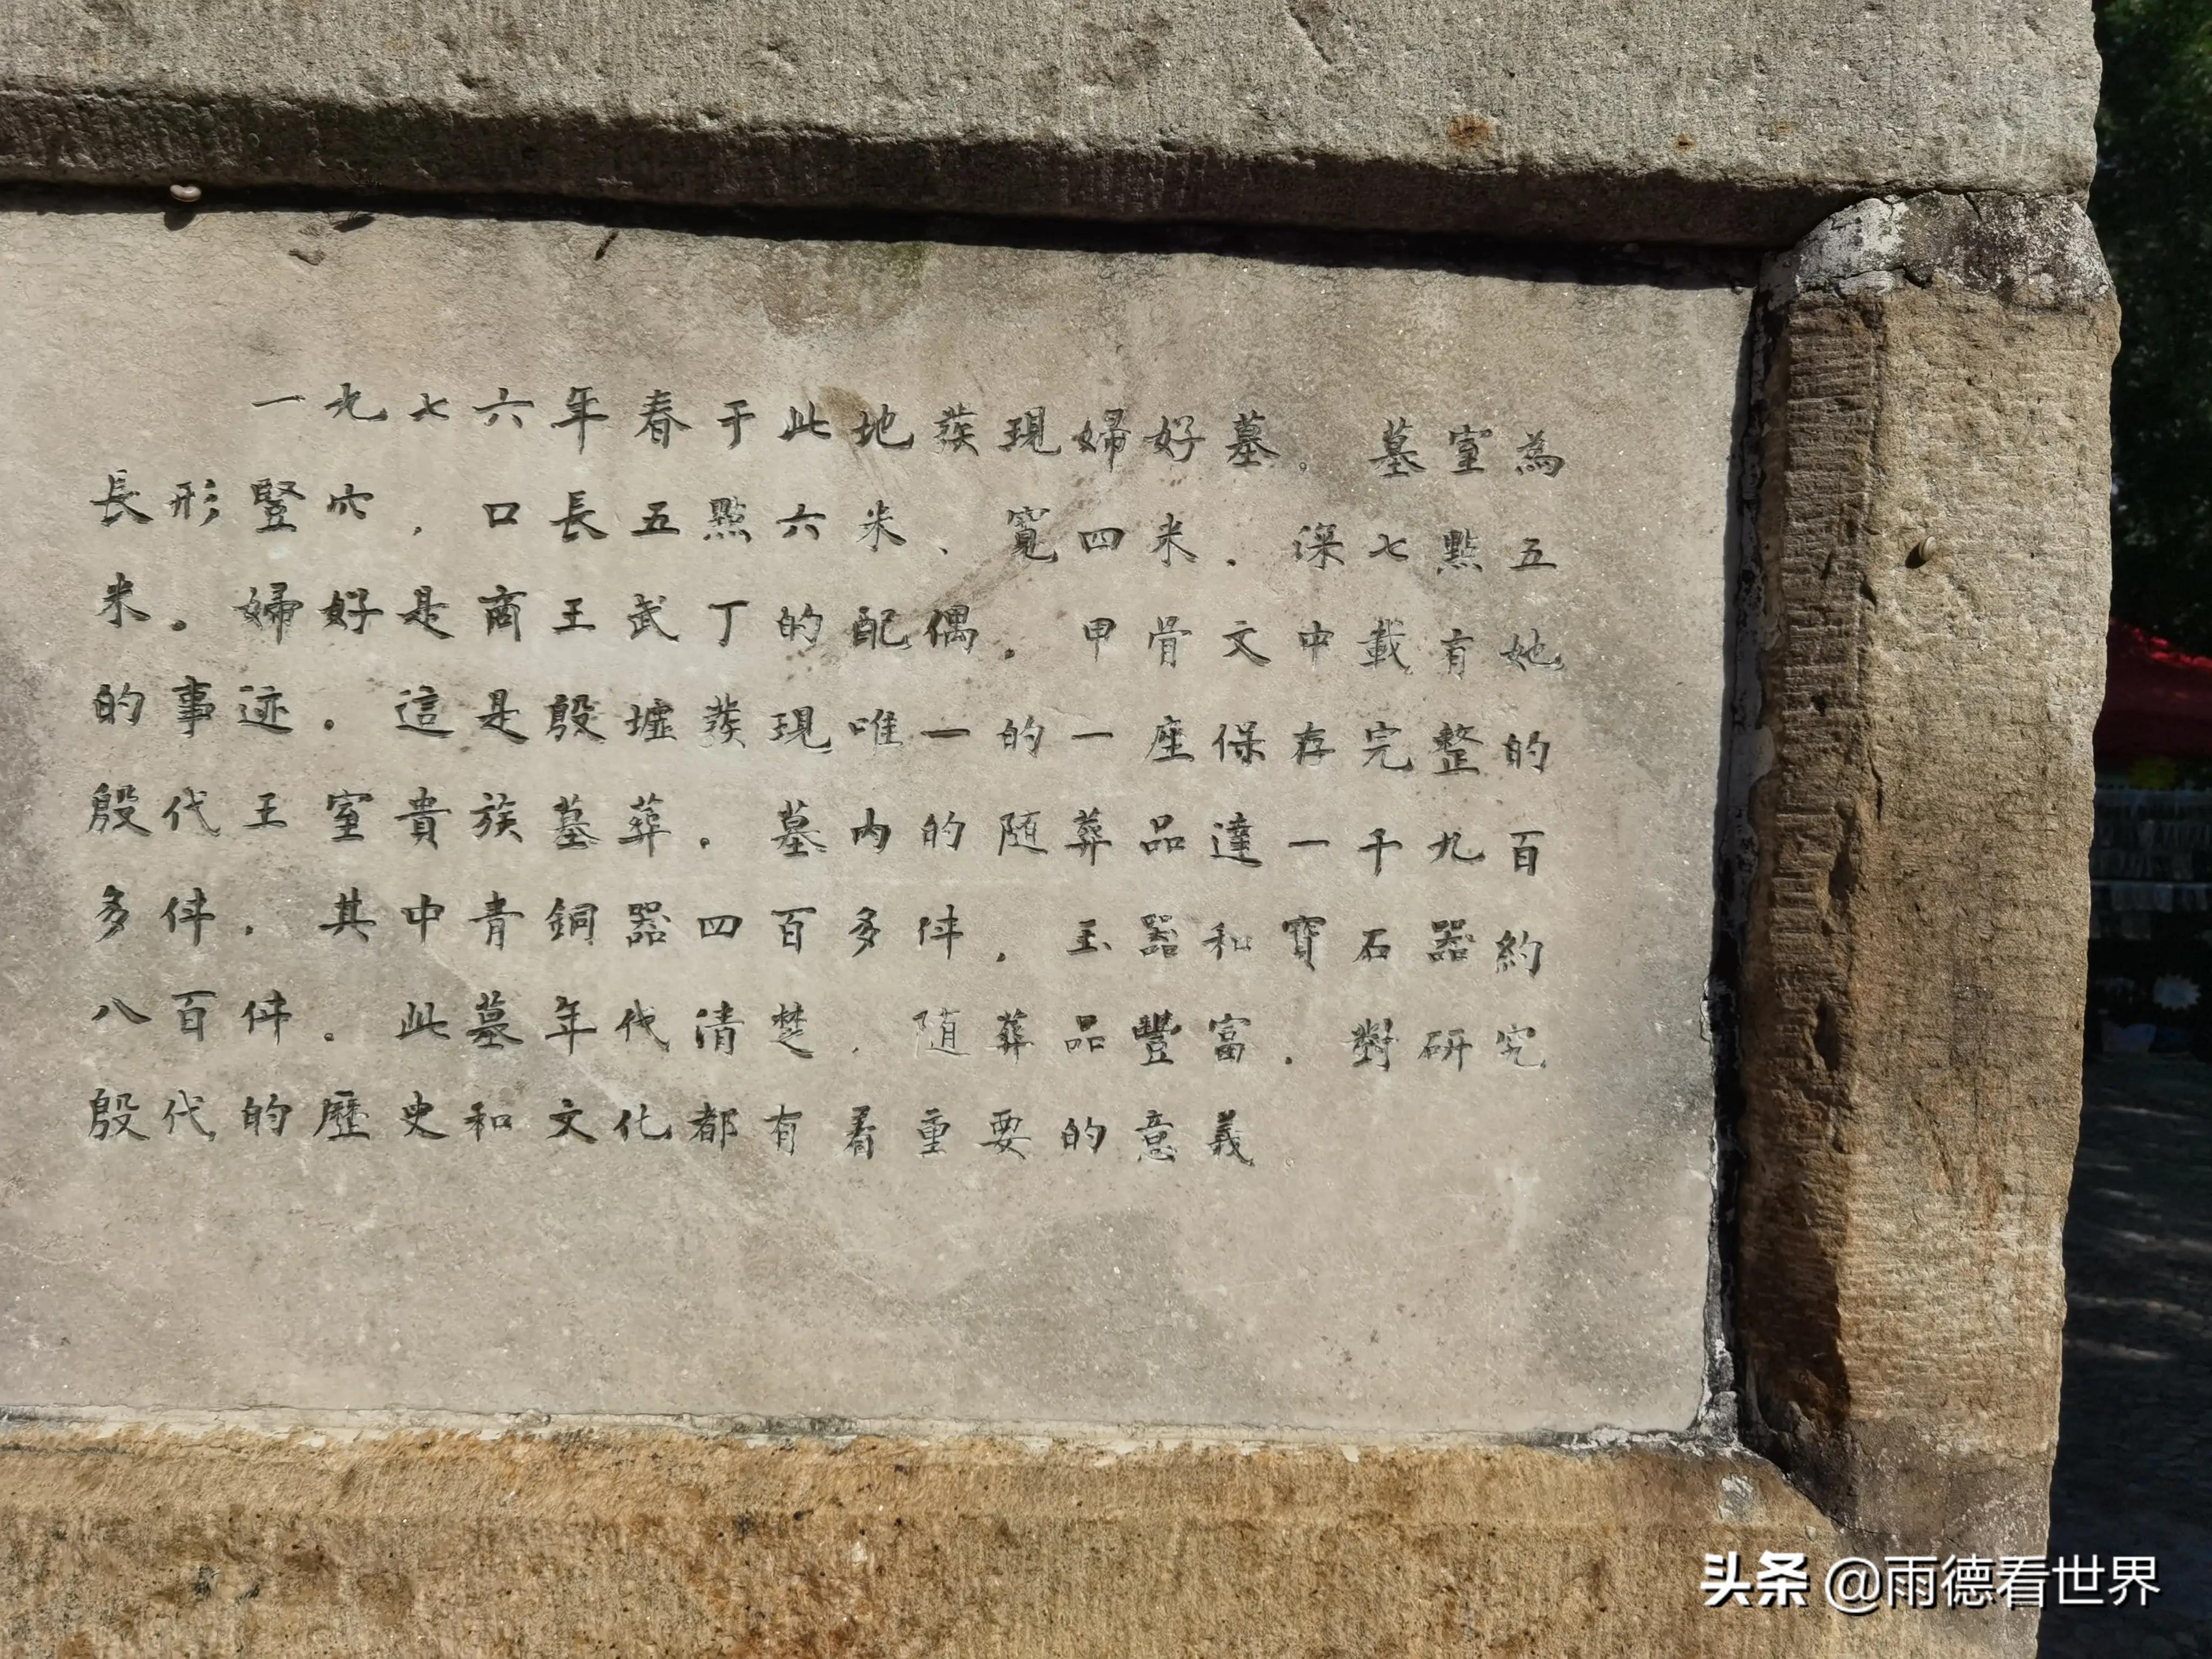 一九七六年春于此地發現婦好墓。墓室為
長形豎穴，口長五點六米、寬四米，深七點五
米。婦好是商王武丁的配偶。甲骨文中載有她
的事迹。這是殷墟發現唯一的一座保存完整的
殷代王室貴族墓葬。墓内的随葬品達一千九百
多件，其中青銅器四百多件，玉器和寶石器約
八百件。此墓年代清楚，随葬品豐富，對研究
殷代的歷史和文化都有着重要的意義
头条 @雨德看世界